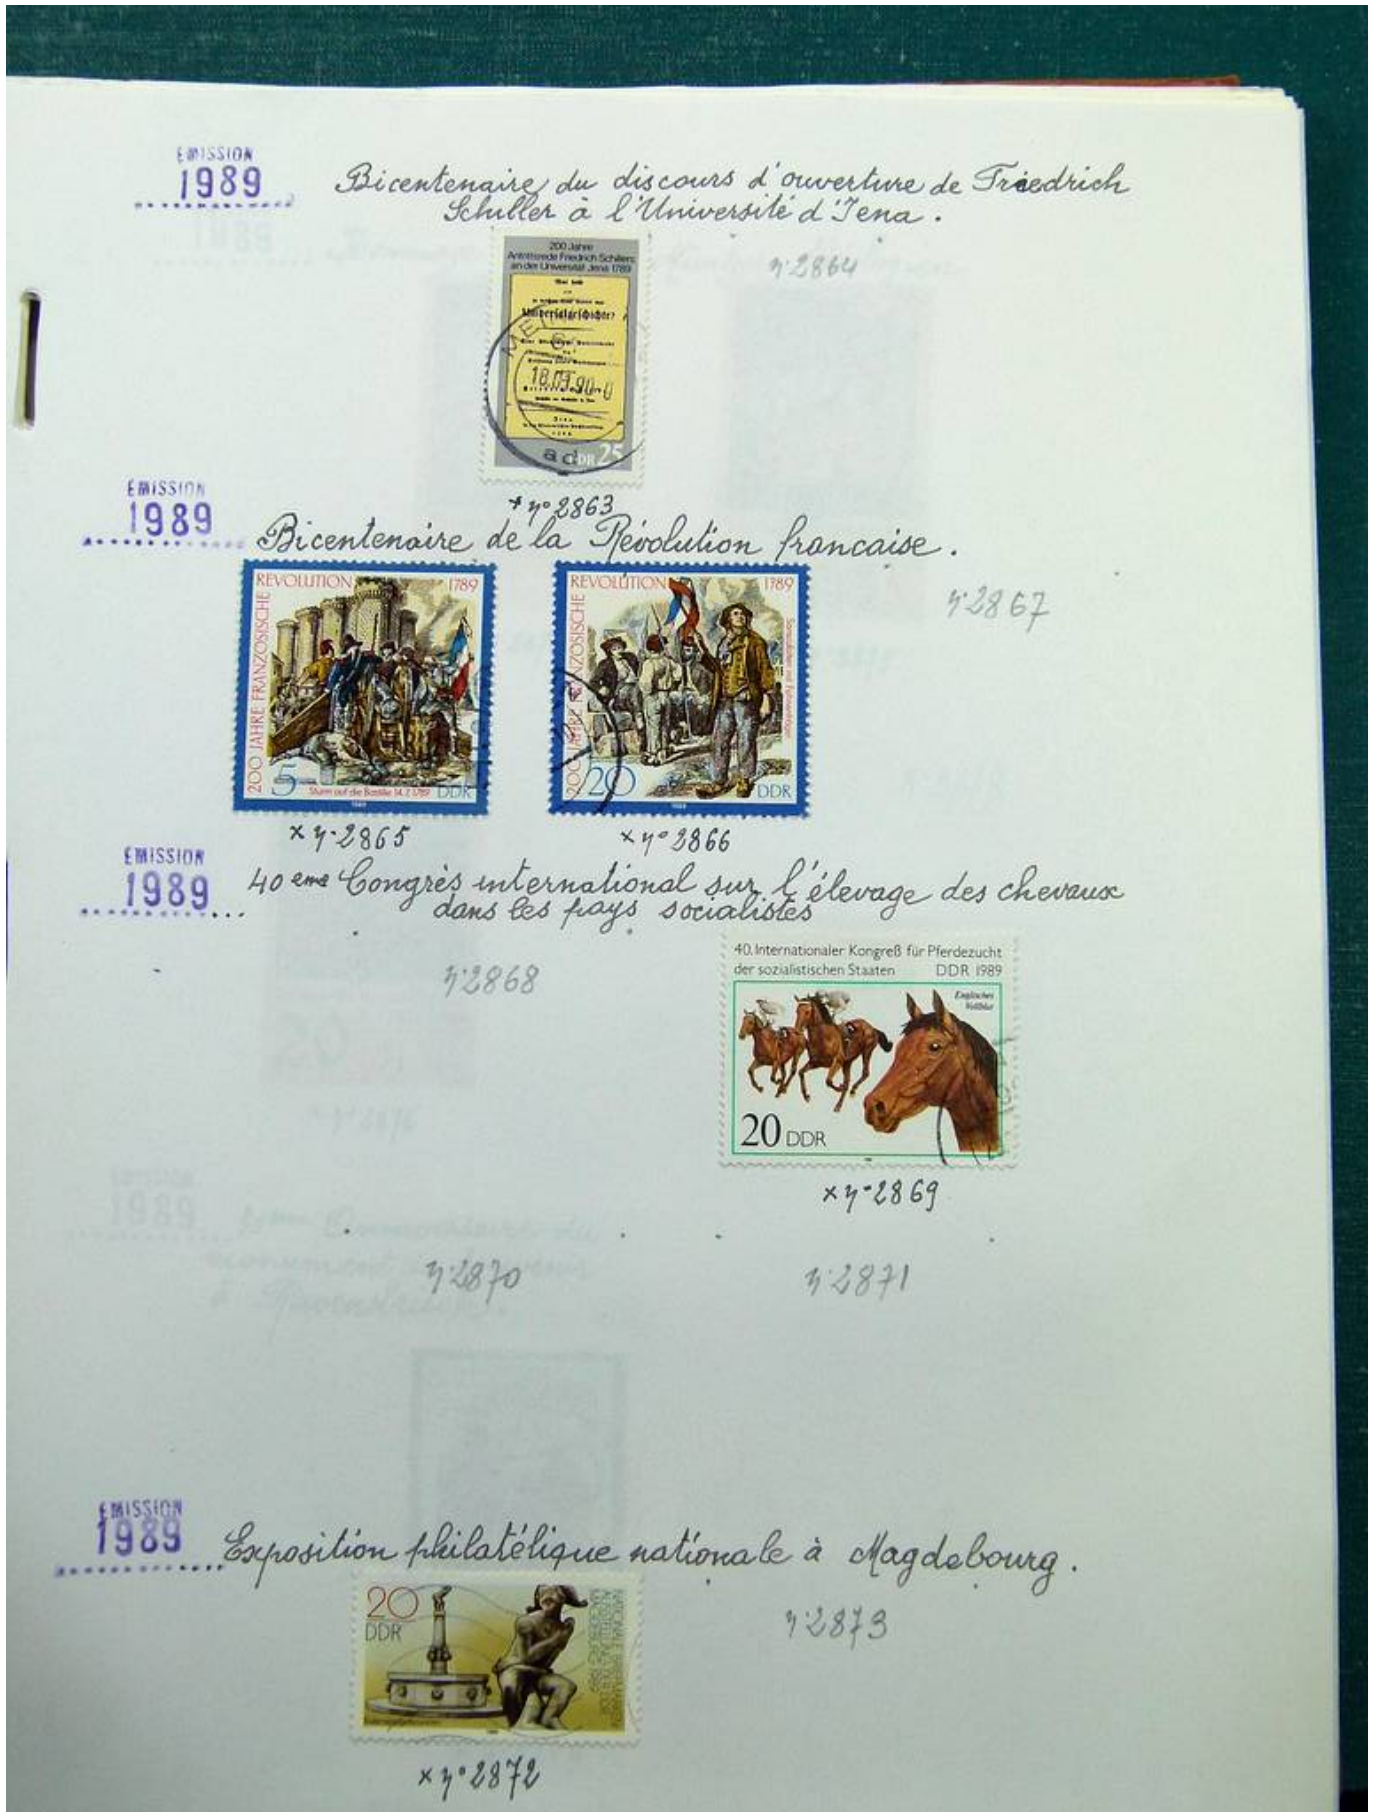 EMISSION
1989
Bicentenaire du discours d'ouverture de Friedrich
Schiller à l'Université d'Jena.
n°2864
200 Jahre
Antrittsrede Friedrich Schillers
an der Universität Jena 1789
Universalgeschichte?
18.09.90
DDR 25
x n° 2863
EMISSION
1989
Bicentenaire de la Révolution francaise.
200 JAHRE FRANZÖSISCHE REVOLUTION 1789
5
Sturm auf die Bastille 14.7.1789 DDR
200 JAHRE FRANZÖSISCHE REVOLUTION 1789
20
DDR
n°2867
x n°2865
x n° 2866
EMISSION
1989
40 eme Congrès international sur l'élevage des chevaux
dans les pays socialistes
n°2868
40. Internationaler Kongreß für Pferdezucht
der sozialistischen Staaten DDR 1989
Englisches
Vollblut
20 DDR
x n°2869
n°2870
n°2871
EMISSION
1989
Exposition philatélique nationale à Magdebourg.
20
DDR
n°2873
x n° 2872